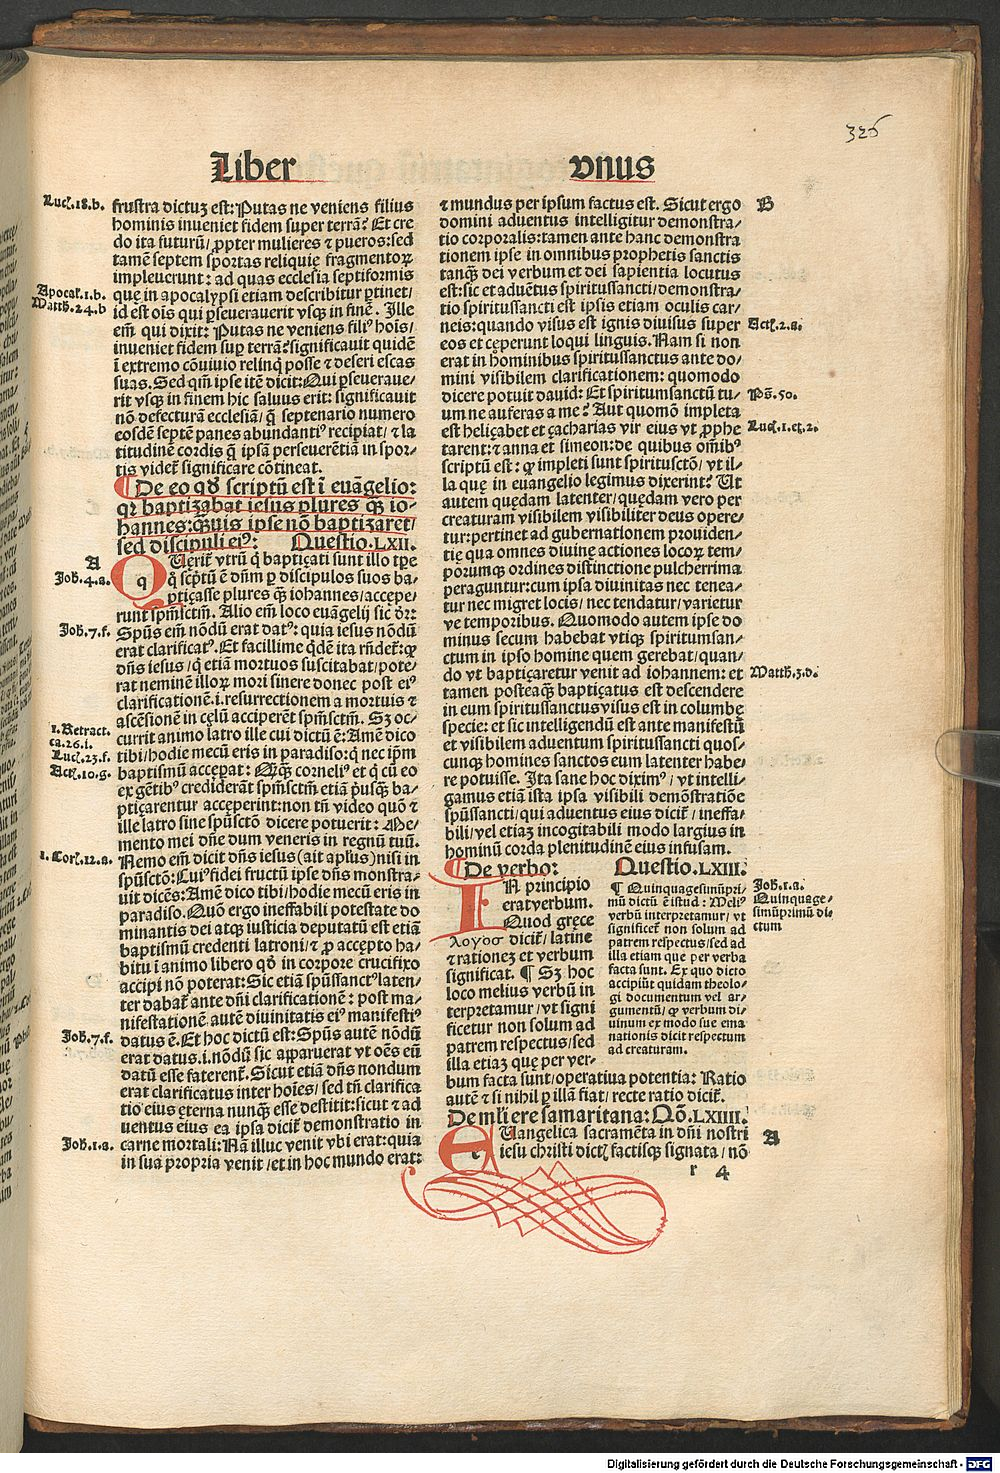 326
Liber vnus
Luc̉.18.b.
frustra dictuꝫ est: Putas ne veniens filius
hominis inueniet fidem super terrā? Et cre
do ita futurū/ ꝓpter mulieres ⁊ pueros: sed
tamē septem sportas reliquię fragmentoꝝ
impleuerunt: ad quas ecclesia septiformis
Apocal̉.1.b.
quę in apocalypsi etiam describitur ꝑtinet/
Matth.24.b
id est oīs qui ꝑseuerauerit vsqꝫ in finē. Ille
em̄ qui dixit: Putas ne veniens filiꝰ hoīs/
inueniet fidem suꝑ terrā? significauit quidē
ī extremo cōuiuio relinq̄ posse ⁊ deseri escas
suas. Sed qm̄ ipse itē dicit: Qui ꝑseueraue-
rit vsqꝫ in finem hic saluus erit: significauit
nō defecturā ecclesiā/ q̄ septenario numero
eosdē septē panes abundantiꝰ recipiat/ ⁊ la
titudinē cordis q̄ ipsā perseuerētia in spor-
tis videt̉ significare cōtineat.
¶ De eo qđ scriptū est ī euāgelio:
qꝛ baptizabat iesus plures qꝫ io-
hannes: q̄uis ipse nō baptizaret/
sed discipuli eiꝰ: Questio.LXII.
A
Joh̄.4.a.
QUerit̉ vtrū q̇ baptiçati sunt illo tꝑe
q̇ sc̉ptū ē dn̄m ꝑ discipulos suos ba-
ptiçasse plures qꝫ iohannes/ accepe-
runt spm̄sctm̄. Alio em̄ loco euāgelij sic dr̄:
Joh̄.7.f.
Spūs em̄ nōdū erat datꝰ: quia iesus nōdū
erat clarificatꝰ. Et facillime q̇dē ita rn̄det̉: ꝙ
dn̄s iesus/ q̇ etiā mortuos suscitabat/ pote/
rat neminē illoꝝ mori sinere donec post eiꝰ
clarificationē.i. resurrectionem a mortuis ⁊
ascēsionē in cęlū acciperēt spm̄sctm̄. Sꝫ oc/
1.Retract.
ca.26.i.
currit animo latro ille cui dictū ē: Amē dico
Luc̉.23.f.
tibi/ hodie mecū eris in paradiso: q̇ nec ip̄m
Act̉.10.g.
baptismū acceꝑat: Q̄qꝫ corneliꝰ et q̇ cū eo
ex gētibꝰ crediderāt spm̄sctm̄ etiā pͥusqꝫ ba-
ptiçarentur acceperint: non tn̄ video quō ⁊
ille latro sine spūsctō dicere potuerit: Me-
mento mei dn̄e dum veneris in regnū tuū.
1. Cor̉.12.a.
Nemo em̄ dicit dn̄s iesus (ait apl̄us) nisi in
spūsctō: Cuiꝰ fidei fructū ipse dn̄s monstra/
uit dicēs: Amē dico tibi/ hodie mecū eris in
paradiso. Quō ergo ineffabili potestate do
minantis dei atqꝫ iusticia deputatū est etiā
baptismū credenti latroni/ ⁊ ꝓ accepto ha-
bitu ī animo libero qđ in corpore crucifixo
accipi nō poterat: Sic etiā spūssanctꝰ laten-
ter dabat̉ ante dn̄i clarificationē: post ma/
nifestationē autē diuinitatis eiꝰ manifestiꝰ
Joh̄.7.f.
datus ē. Et hoc dictū est: Spūs autē nōdū
erat datus.i. nōdū sic apparuerat vt oēs eū
datū esse faterent̉. Sicut etiā dn̄s nondum
erat clarificatus inter hoīes/ sed tn̄ clarifica
tio eius ęterna nunqꝫ esse destitit: sicut ⁊ ad
uentus eius ea ipsa dicit̉ demonstratio in
Joh̄.1.a.
carne mortali: Nā illuc venit vbi erat: quia
in sua propria venit/ et in hoc mundo erat:
⁊ mundus per ipsum factus est. Sicut ergo
B
domini aduentus intelligitur demonstra/
tio corporalis: tamen ante hanc demonstra
tionem ipse in omnibus prophetis sanctis
tanqꝫ dei verbum et dei sapientia locutus
est: sic et aduētus spiritussancti/ demonstra/
tio spiritussancti est ipsis etiam oculis car/
neis: quando visus est ignis diuisus super
Act̉.2.a.
eos et ceperunt loqui linguis. Nam si non
erat in hominibus spiritussanctus ante do-
mini visibilem clarificationem: quomodo
dicere potuit dauid: Et spiritumsanctū tu/
Ps̄.50.
um ne auferas a me? Aut quomō impleta
est heliçabet et çacharias vir eius vt ꝓphe
Luc̉.1.et.2.
tarent: ⁊ anna et simeon: de quibus om̄ibꝰ
scriptū est: ꝙ impleti sunt spiritusctō/ vt il-
la quę in euangelio legimus dixerint? Ut
autem quędam latenter/ quędam vero per
creaturam visibilem visibiliter deus opere/
tur: pertinet ad gubernationem prouiden/
tię qua omnes diuinę actiones locoꝝ tem/
porumqꝫ ordines distinctione pulcherrima
peraguntur: cum ipsa diuinitas nec tenea/
tur nec migret locis/ nec tendatur/ varietur
ve temporibus. Quomodo autem ipse do
minus secum habebat vtiqꝫ spiritumsan/
ctum in ipso homine quem gerebat/ quan/
do vt baptiçaretur venit ad iohannem: et
Matth̄.3.d.
tamen posteaqꝫ baptiçatus est descendere
in eum spiritussanctus visus est in columbę
specie: et sic intelligendū est ante manifestū
et visibilem aduentum spiritussancti quos/
cunqꝫ homines sanctos eum latenter habe/
re potuisse. Ita sane hoc diximꝰ/ vt intelli/
gamus etiā ista ipsa visibili demōstratiōe
spūssancti/ qui aduentus eius dicit̉/ ineffa/
bili/ vel etiaꝫ incogitabili modo largius in
hominū corda plenitudinē eius infusam.
¶ De verbo: Questio.LXIII.
IN principio
erat verbum.
Quod gręce
λογοσ dicit̉/ latine
⁊ rationeꝫ et verbum
significat. ¶ Sꝫ hoc
loco melius verbū in
terpretamur/ vt signi
ficetur non solum ad
patrem respectus/ sed
illa etiaꝫ que per ver-
bum facta sunt/ operatiua potentia: Ratio
autē ⁊ si nihil ꝑ illā fiat/ recte ratio dicit̉.
¶ Quinquagesimūpri/
mū dictū ē istud: Meliꝰ
verbū interpretamur/ vt
significet̉ non solum ad
patrem respectus/ sed ad
illa etiam que per verba
facta sunt. Ex quo dicto
accipiūt quidam theolo/
gi documentum vel ar/
gumentū/ ꝙ verbum di/
uinum ex modo sue ema
nationis dicit respectum
ad creaturam.
Joh̄.1.a.
Quinquage-
simūprimū di
ctum
De mĺiere samaritana: Qō.LXIIII.
EUangelica sacramēta in dn̄i nostri
A
iesu christi dict̉ factisqꝫ signata/ nō
r 4
Digitalisierung gefördert durch die Deutsche Forschungsgemeinschaft - DFG